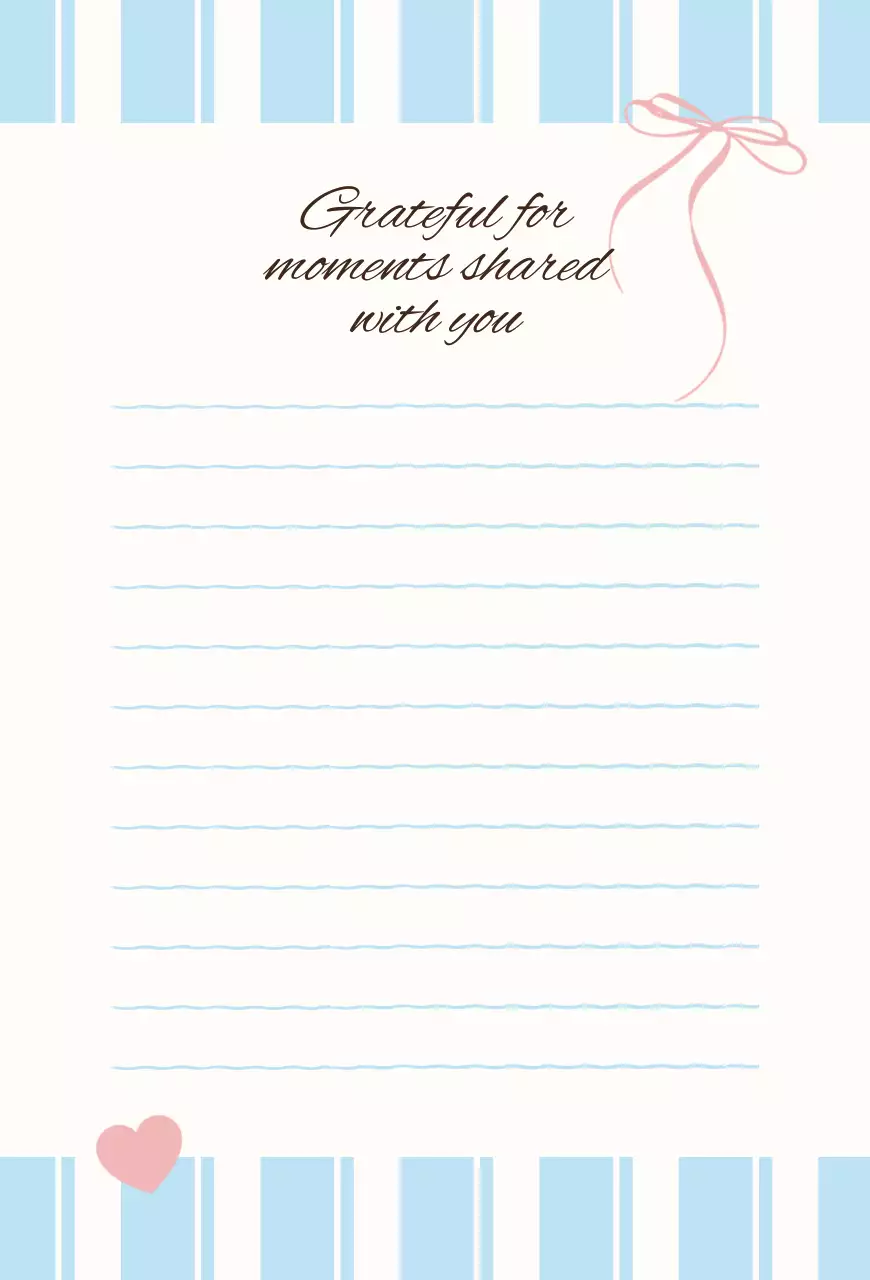 Grateful for
moments shared
with you